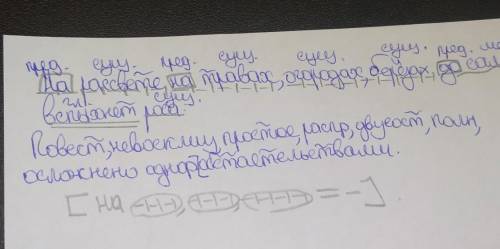 пред. сущ. пред. сущ. сущ. сущ. пред. ме
На рассвете, на травах, огородах, берёзах до сам
гл. сущ.
вспыхнет роса.
Повест, невосклиц, простое, распр, двусост, полн,
осложнено однор. обстоятельствами.
[на -·-·-, -·-·-, -·-·- = -].